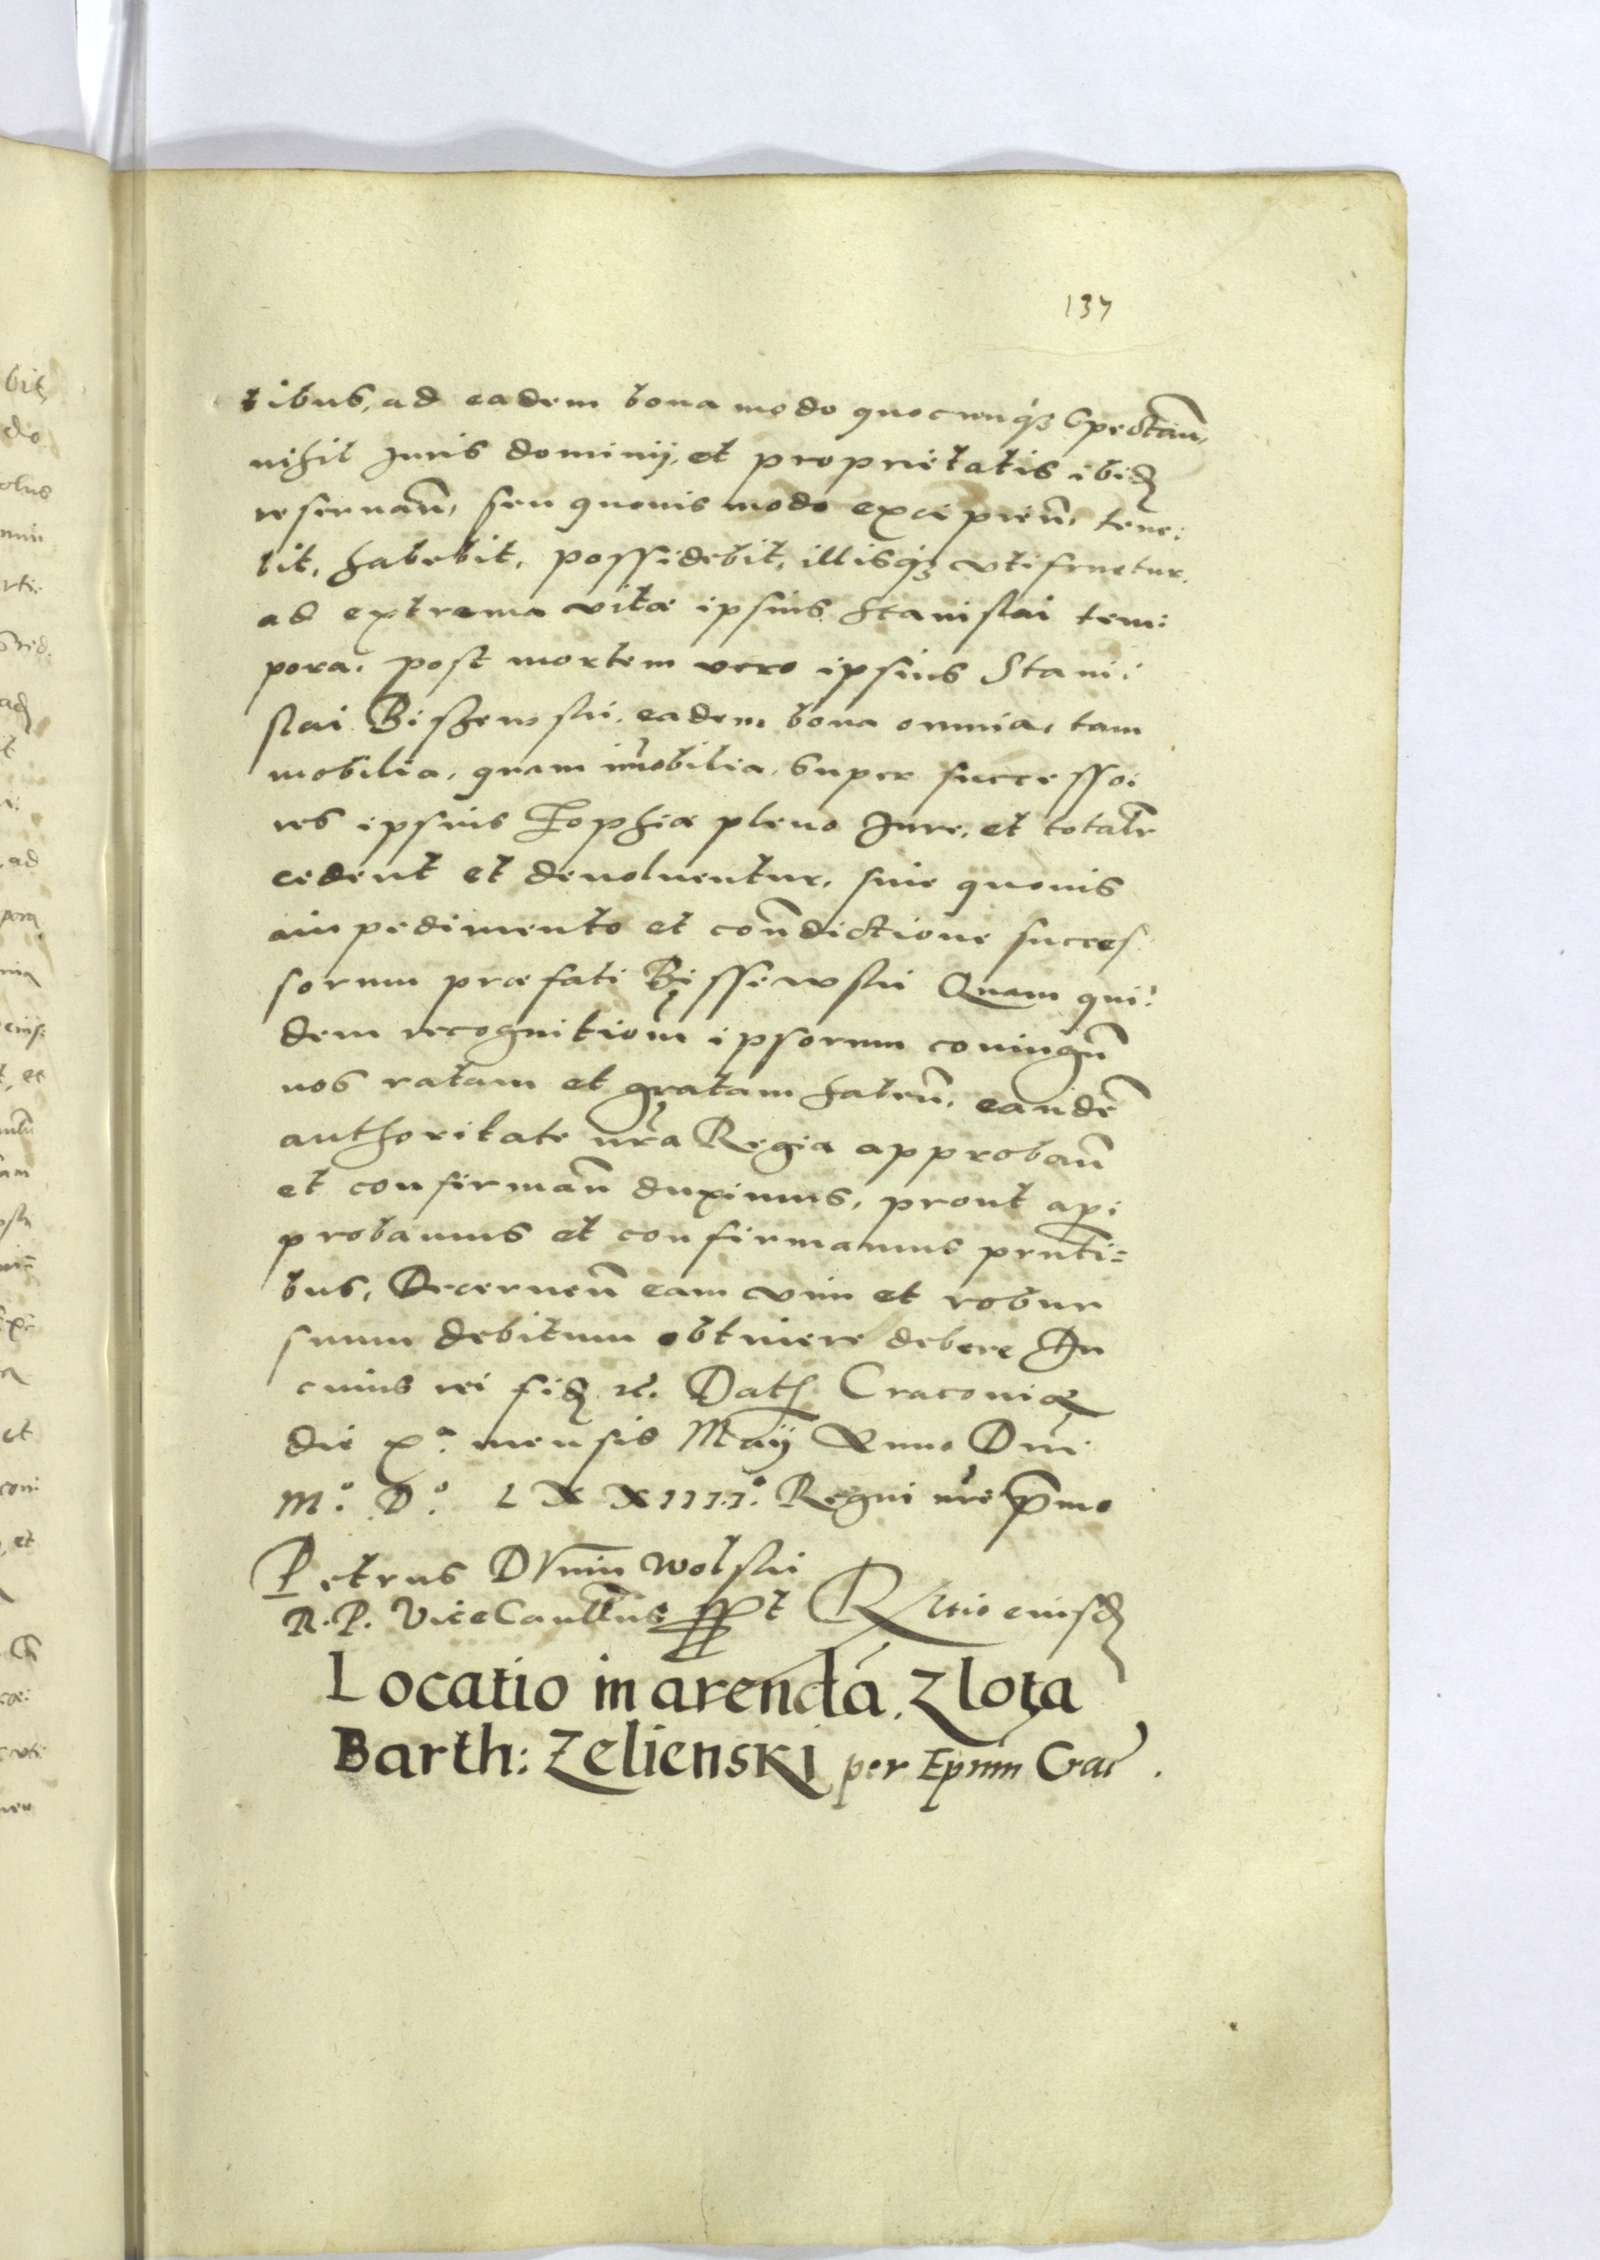 137
tibus, ad eadem bona modo quocunq3 spectan̄,
nihil Juris dominij, et proprietatis ibid
reseruan̄, seu quouis modo excipien̄, tene:
bit, habebit, possidebit, illisq3 vtifruetur,
ad extrema vitæ ipsius Stanislai tem:
pora, post mortem vero ipsius Stani:
slai Biszewski, eadem bona omnia, tam
mobilia, quam im̄obilia, super successo:
res ipsius Zophiæ pleno Jure, et totalr̄
cedent et deuoluentur, sine quouis
impedimento et con̄dictione succes
sorum præfati Bissewski Quam qui:
dem recognitiom̄ ipsorum coniugū
nos ratam et gratam haben̄, eandē
authoritate nr̄a Regia approban̄
et confirman̄ duximus, prout ap:
probamus et confirmamus prn̄ti=
bus, Decernen̄ eam vim et robur
suum debitum obtinere debere In
cuius rei fid etc. Dat Cracouiæ
die xa. mensis Maij Anno Dni
Mo. Do. LXXIIIIo. Regni nr̄i p̄mo
Petrus Dunin Wolski
R. P. ViceCancellrius sst Rltio eiusd
Locatio in arendā. Zlota
Barth: Zelienski per Epum Crac.